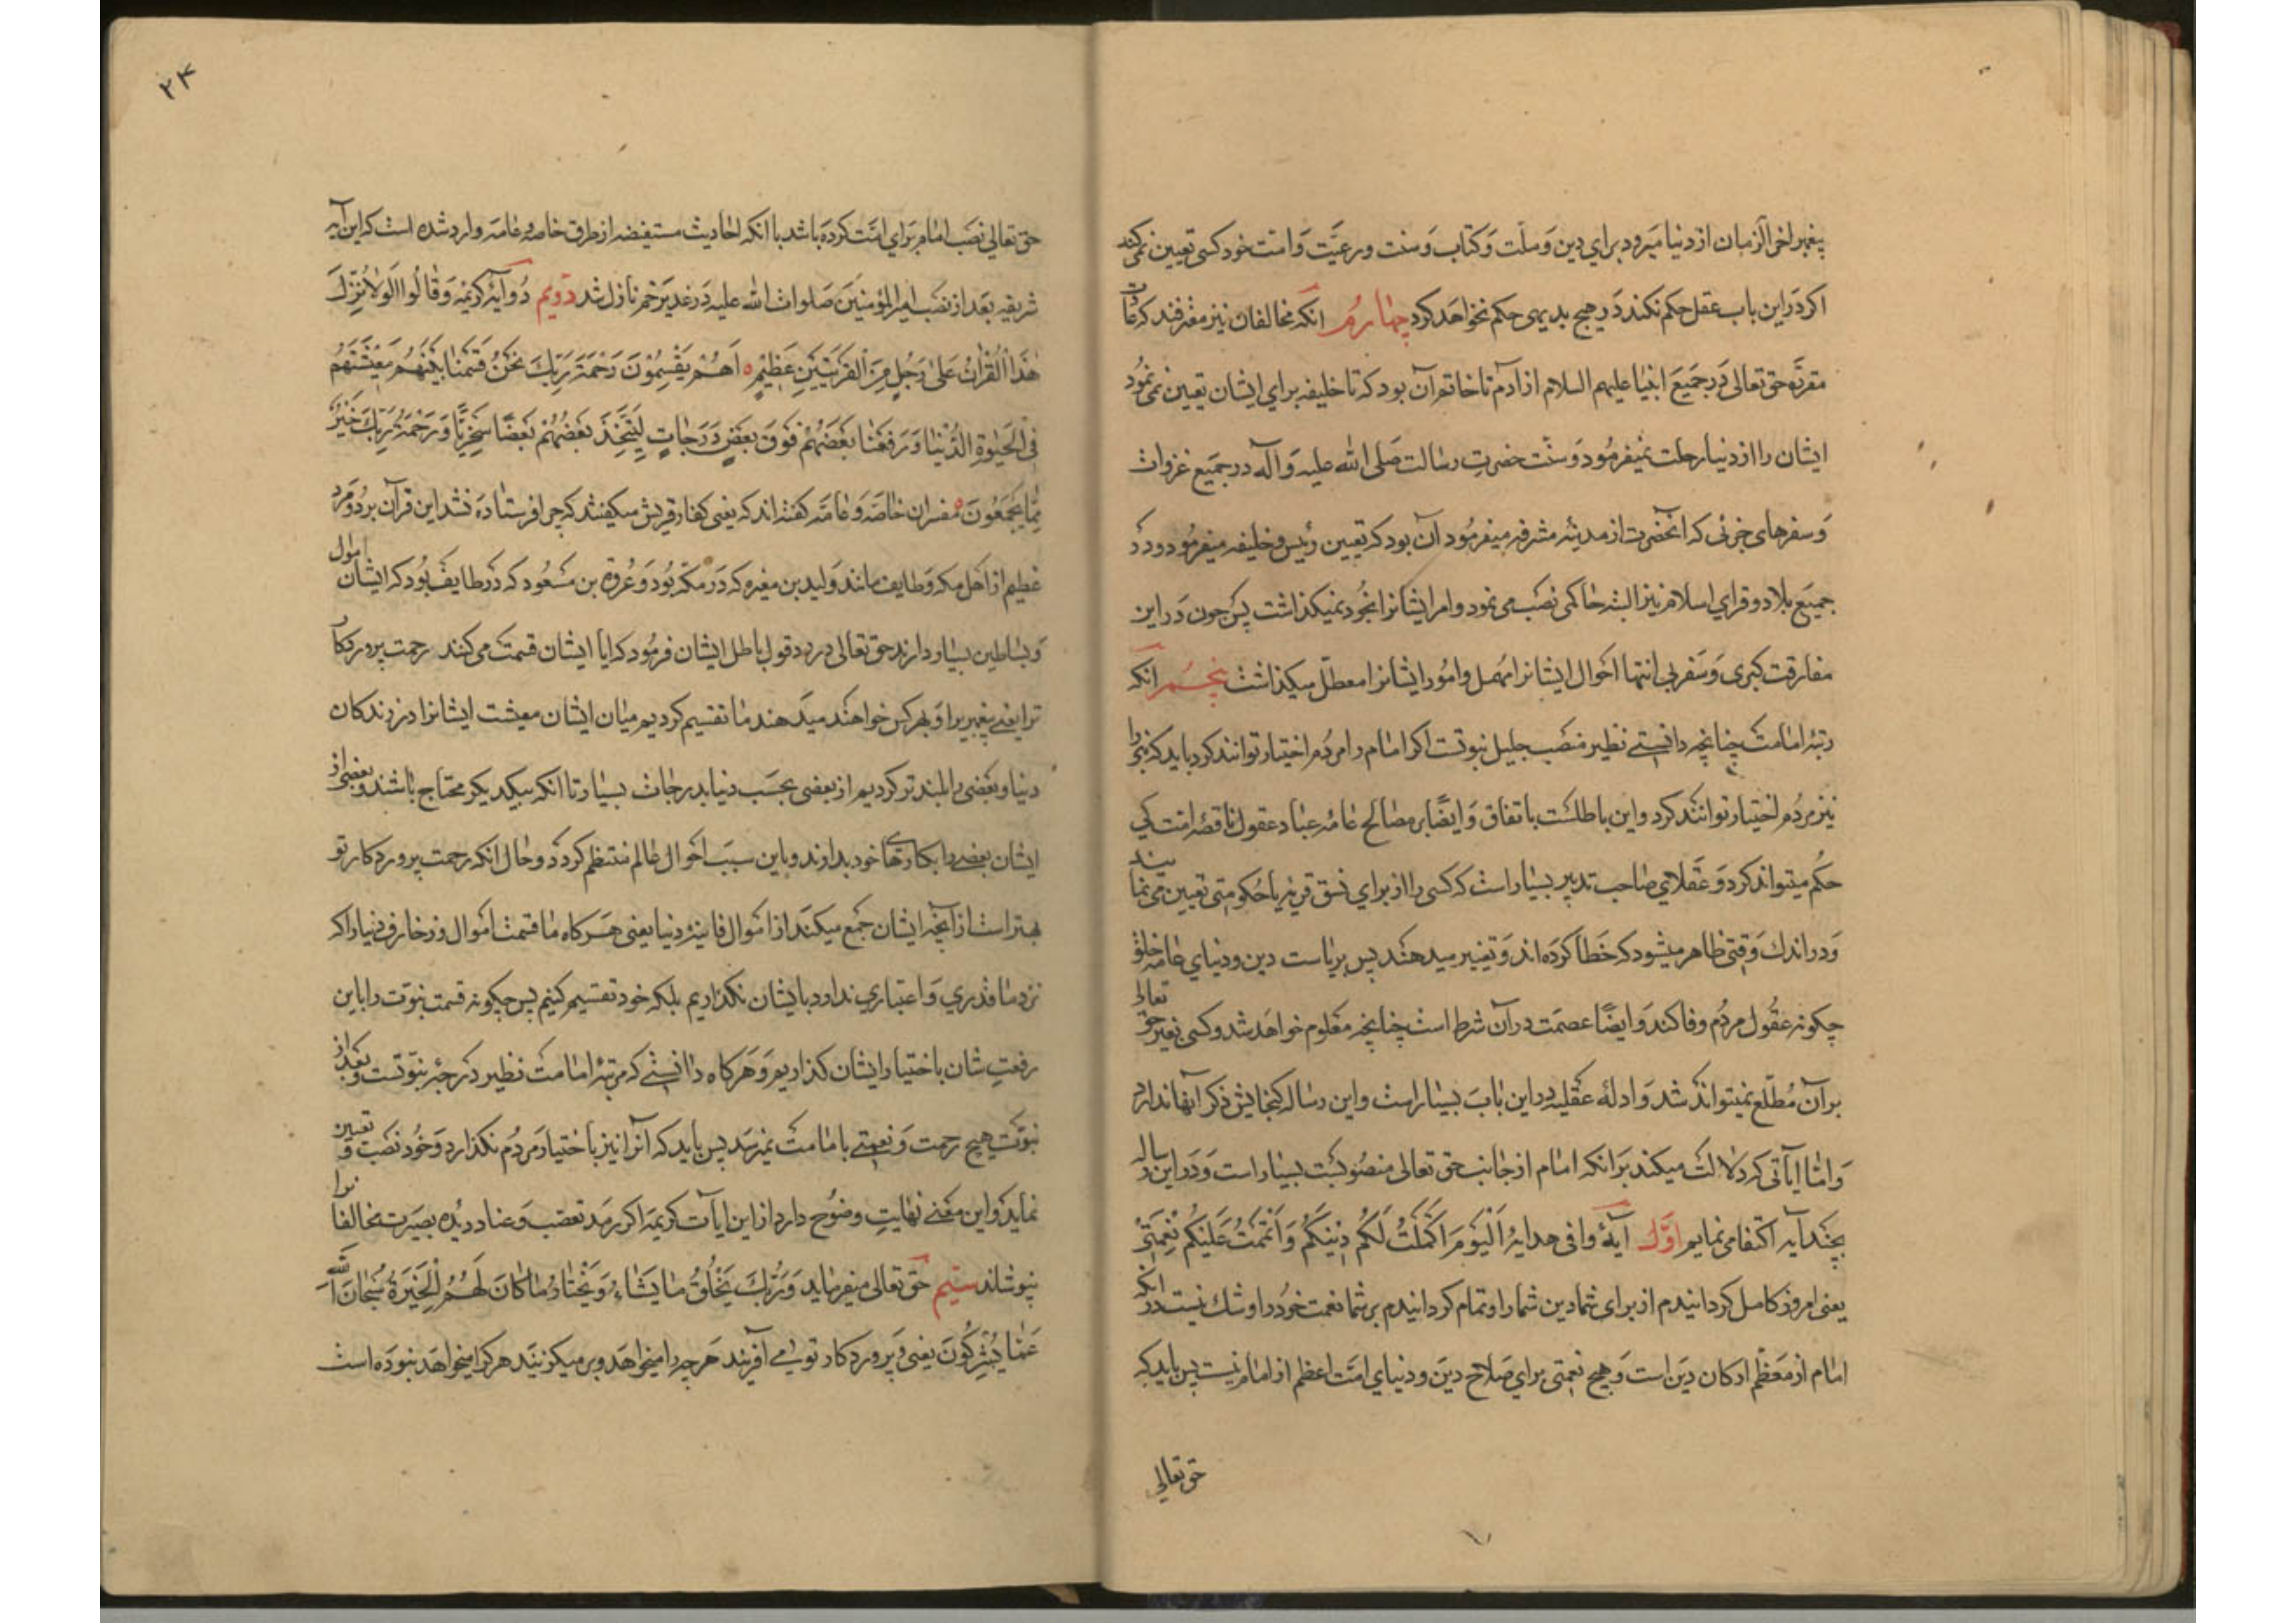 پیغمبر اخر الزمان از دنیا میرود برای دین و ملت و کتاب و سنت و رعیت و امت خود کسی تعیین نمی‌کند
اکر در این باب عقل حکم نکند در هیچ بدیهی حکم نخواهد کرد چهارم انکه مخالفان نیز معترفند که عادات
مقرّه حق تعالی در جمیع انبیا علیهم السلام از ادم تا خاتم آن بود که تا خلیفه برای ایشان تعیین نمی‌نمود
ایشان را از دنیا رحلت نمیفرمود و سنت حضرت رسالت صلی الله علیه و آله در جمیع غزوات
و سفرهای جزئی که انحضرت از مدینه مشرفه میفرمود آن بود که تعیین رئیس و خلیفه میفرمود و در
جمیع بلاد و قرای اسلام نیز البته حاکمی نصب می نمود و امر ایشانرا بخود نمیکذاشت پس چون در این
مفارقت کبری و سفر بی انتها احوال ایشانرا مهمل و امور ایشانرا معطّل میکذاشت پنجم انکه
رتبه امامت چنانچه دانستی نظیر منصب جلیل نبوتست اکر امام را مردم اختیار توانند کرد باید که نبی را
نیز مردم اختیار توانند کرد و این باطلست باتفاق و ایضًا بر مصالح عامه عباد عقول ناقصه امت کی
حکم میتواند کرد و عقلای صاحب تدبیر بسیار است که کسی را از برای نسق قریه یا حکومتی تعیین می نمایند
و در اندك وقتی ظاهر میشود که خطا کرده‌اند و تغییر میدهند پس بریاست دین و دنیای عامه خلق
چکونه عقول مردم وفا کند و ایضًا عصمت در آن شرط است چنانچه معلوم خواهد شد و کسی بغیر حق تعالی
بر آن مطّلع نمیتواند شد و ادلهٔ عقلیه در این باب بسیار است و این رساله کنجایش ذکر آنها ندارد
و امّا ایاتی که دلالت میکند بر انکه امام از جانب حق تعالی منصوبست بسیار است و در این رساله
بچند آیه اکتفا می نمایم اوّل آیهٔ وافی هدایهٔ الْیَوْمَ اَکْمَلْتُ لَکُمْ دِینَکُمْ وَ اَتْمَمْتُ عَلَیْکُمْ نِعْمَتِی
یعنی امروز کامل کردانیدم از برای شما دین شما را و تمام کردانیدم بر شما نعمت خود را و شك نیست در انکه
امام از معظّم ارکان دین است و هیچ نعمتی برای صلاح دین و دنیای امّت اعظم از امام نیست پس باید که
حق تعالی
۲۴
حق تعالی نصب امام برای امّت کرده باشد با انکه احادیث مستفیضه از طرق خاصه و عامه وارد شده است که این آیه
شریفه بعد از نصب امیر المؤمنین صلوات الله علیه در غدیر خم نازل شد دویم دو آیهٔ کریمه وَ قَالُوا لَوْلَا نُزِّلَ
هٰذَا الْقُرْآنُ عَلیٰ رَجُلٍ مِنَ الْقَرْیَتَیْنِ عَظِیْمٍ اَهُمْ یَقْسِمُوْنَ رَحْمَةَ رَبِّكَ نَحْنُ قَسَمْنَا بَیْنَهُمْ مَعِیْشَتَهُمْ
فِی الْحَیٰوةِ الدُّنْیَا وَ رَفَعْنَا بَعْضَهُمْ فَوْقَ بَعْضٍ دَرَجَاتٍ لِیَتَّخِذَ بَعْضُهُمْ بَعْضًا سُخْرِیًّا وَ رَحْمَةُ رَبِّكَ خَیْرٌ
مِمَّا یَجْمَعُونَ مفسران خاصّه و عامّه کفته‌اند که یعنی کفار قریش میکفتند که چرا فرستاده نشد این قرآن بر دو مرد
عظیم از اهل مکه و طایف مانند ولید بن مغیره که در مکه بود و عروة بن مسعود که در طایف بود که ایشان اموال
و بساطین بسیار دارند حق تعالی در رد قول باطل ایشان فرمود که ایا ایشان قسمت می کنند رحمت پروردکار
ترا یعنی پیغمبری را و بهر کس خواهند میدهند ما تقسیم کردیم میان ایشان معیشت ایشانرا در زندکان
دنیا و بعضی را بلندتر کردیم از بعضی بحسب دنیا بدرجات بسیار تا انکه بیکدیکر محتاج باشند و بعضی از
ایشان بعضی را بکارهای خود بدارند و باین سبب احوال عالم منتظم کردد و حال انکه رحمت پروردکار تو
بهتر است از آنچه ایشان جمع میکنند از اموال فانیهٔ دنیا یعنی هرکاه ما قسمت اموال و زخارف دنیا را که
نزد ما قدری و اعتباری ندارد بایشان نکذاریم بلکه خود تقسیم کنیم پس چکونه قسمت نبوّت را باین
رفعت شان باختیار ایشان کذاریم و هرکاه دانستی که مرتبهٔ امامت نظیر درجهٔ نبوّتست و بعد از
نبوّت هیچ رحمت و نعمتی بامامت نمیرسد پس باید که آنرا نیز باختیار مردم نکذارد و خود نصب و تعیین
نماید و این معنی نهایت وضوح دارد از این ایات کریمه اکر رمد تعصّب و عناد دیده بصیرت مخالفانرا
نپوشاند سیم حق تعالی میفرماید وَ رَبُّكَ یَخْلُقُ مَا یَشَاءُ وَ یَخْتَارُ مَا کَانَ لَهُمُ الْخِیَرَةُ سُبْحَانَ اللّٰهِ
عَمَّا یُشْرِکُونَ یعنی و پروردکار تو می آفریند هر چه را میخواهد و بر میکزیند هر که را میخواهد نبوده است